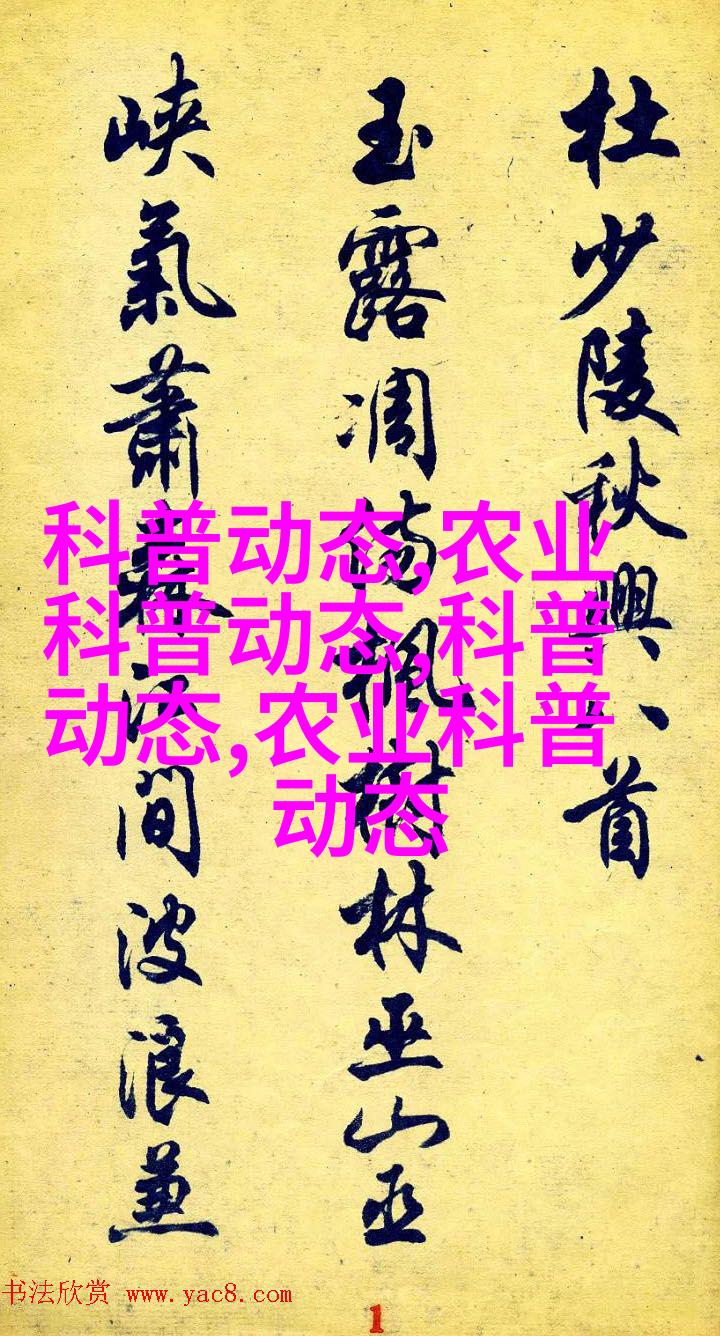 杜少陵秋興八首
玉露凋傷楓樹林巫山巫
峽氣蕭森江間波浪兼
科普动态,农业
科普动态,科普
动态,农业科普
动态
书法欣赏 www.yac8.com
1